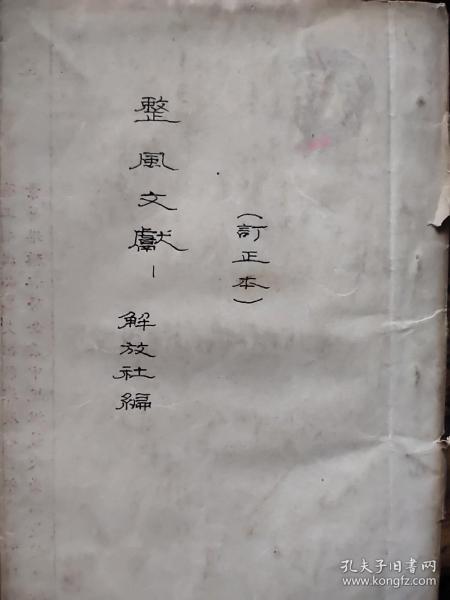 （訂正本）
整風文獻－
解放社編
孔夫子旧书网
www.kongfz.com